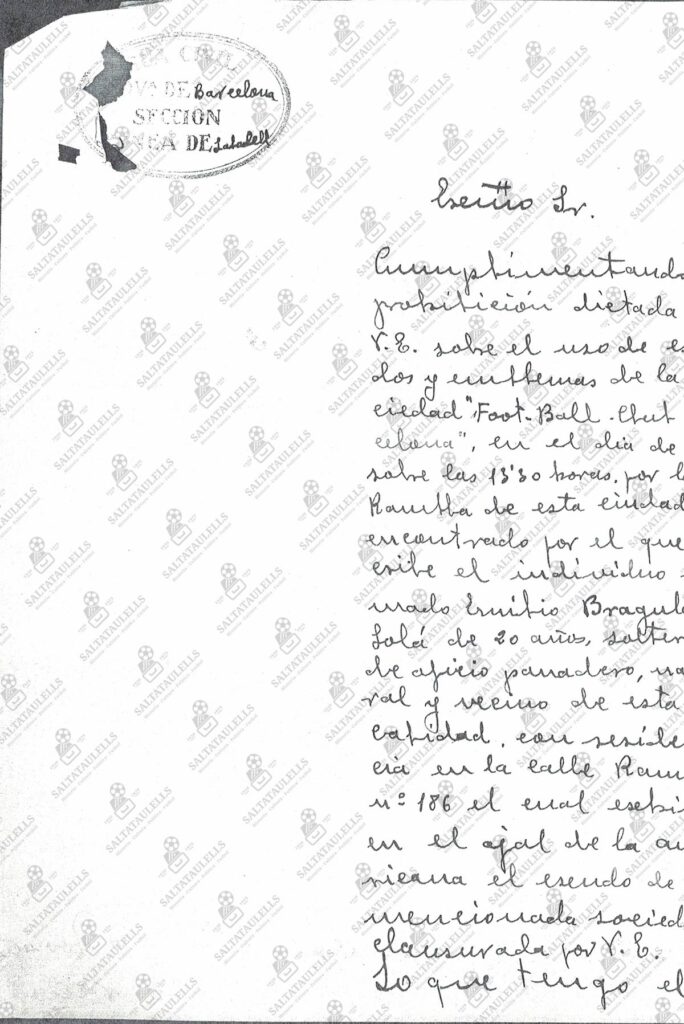 CIVIL
DE Barcelona
SECCION
DE Sabadell
Exctmo Sr.
Cumplimentando
prohibición dictada
V.E. sobre el uso de es
dos y emblemas de la
ciedad "Foot-Ball-Club
celona", en el dia de
sobre las 13'30 horas. por l
Rambla de esta ciudad
encontrado por el que
cribe el individuo
mado Emilio Bragul
Solá de 20 años, solter
de oficio panadero, na
ral y vecino de esta
calidad, con reside
cia en la calle Ram
nº 186 el cual exhi
en el ojal de la am
ricana el escudo de
mencionada socied
clausurada por V.E.
Lo que tengo el
SALTATAULELLS